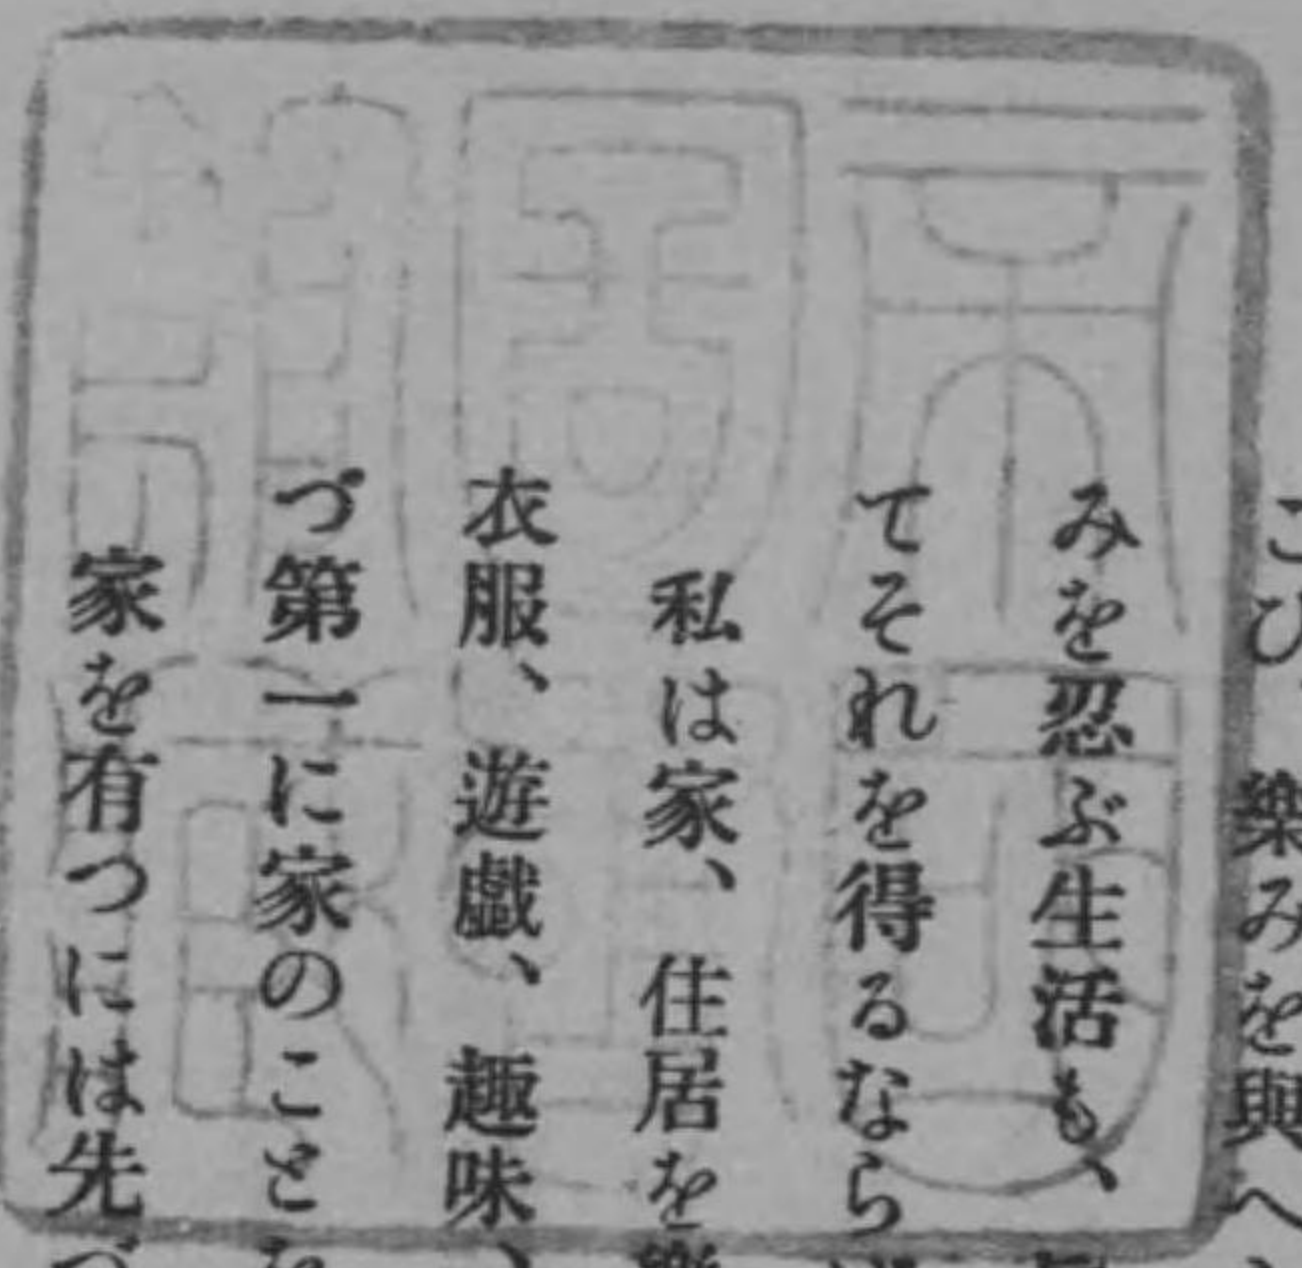 こひ、樂みを與へ
みを忍ぶ生活も、
てそれを得るなら
私は家、住居を樂
衣服、遊戯、趣味、
づ第一に家のこと
家を有つには先づ